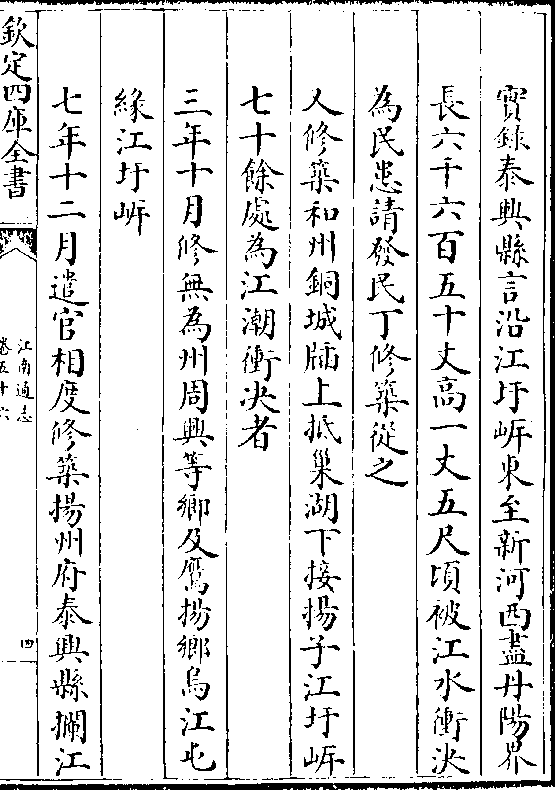 實錄泰興縣言沿江圩岸東至新河西盡丹陽界
長六千六百五十丈高一丈五尺頃被江水衝決
為民患請發民丁修築從之
人修築和州銅城牐上抵巢湖下接揚子江圩岸
七十餘處為江潮衝決者
三年十月修無為州周興等鄉及鷹揚鄉烏江屯
緣江圩岸
七年十二月遣官相度修築揚州府泰興縣攔江
欽定四庫全書
江南通志
卷五十六
四